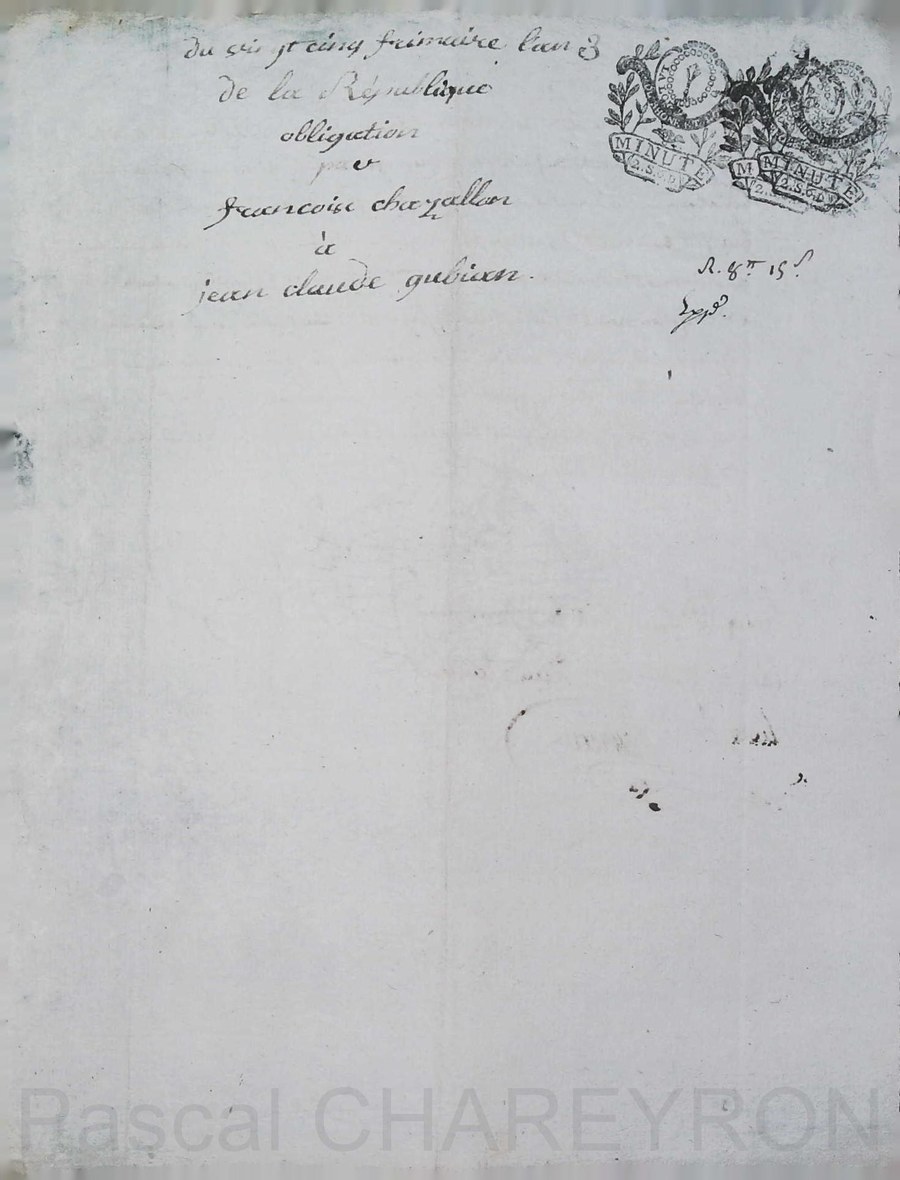 du vingt cinq frimaire lan 3
de la République
obligation
par
francoise chazallon
à
jean claude gubian.
MINUTE
2.S.6.D
MINUTE
2.S.6.D
R. 8tt 15s
Pascal CHAREYRON